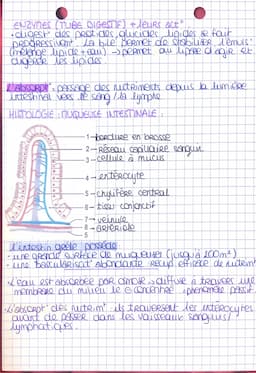 ENZYMES (TUBE DIGESTIF) + leurs act°
• digest° des peptides, glucides, lipides se fait
progressivement. La bile permet de stabiliser l'émuls°
(mélange lipide + eau) → permet au lipase d'agir et
digérer les lipides.
L'absorpt° : passage des nutriments depuis la lumière
intestinale vers le sang / la lymphe.
HISTOLOGIE : MUQUEUSE INTESTINALE :
1 - bordure en brosse
2 - Réseau capillaire sanguin
3 - cellule à mucus
4 - entérocyte
5 - chylifère central
6 - tissu conjonctif
7 → veinule
8 - artériole
L'intestin grêle possède
- une grande surface de muqueuses (jusqu'à 200m²)
- une vascularisat° abondante
L'eau est absorbée par osmose → diffuse à travers une
membrane du milieu le - concentré, phénomène passif.
L'absorpt° des nutrim° : ils traversent les entérocytes
avant de passer dans les vaisseaux sanguins /
lymphatiques.